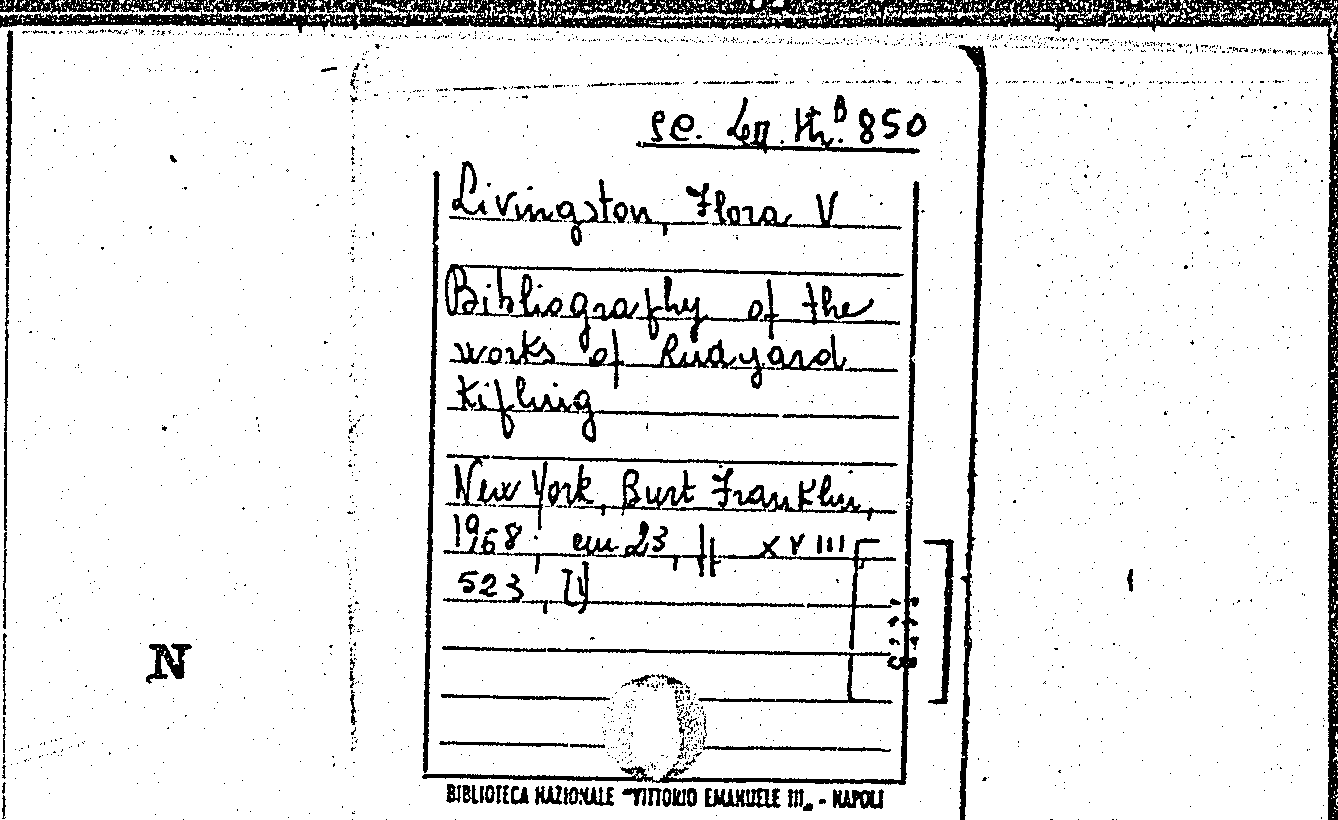 850
Livingston, Flora V
Bibliography of the
works of Rudyard
Kipling
New York, Burt Franklin,
1968. cm 23, pp XVIII
523, [1]
N
BIBLIOTECA NAZIONALE "VITTORIO EMANUELE III„ - NAPOLI